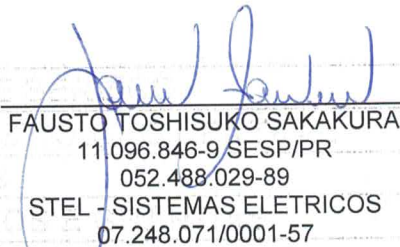 FAUSTO TOSHISUKO SAKAKURA
11.096.846-9 SESP/PR
052.488.029-89
STEL - SISTEMAS ELETRICOS
07.248.071/0001-57